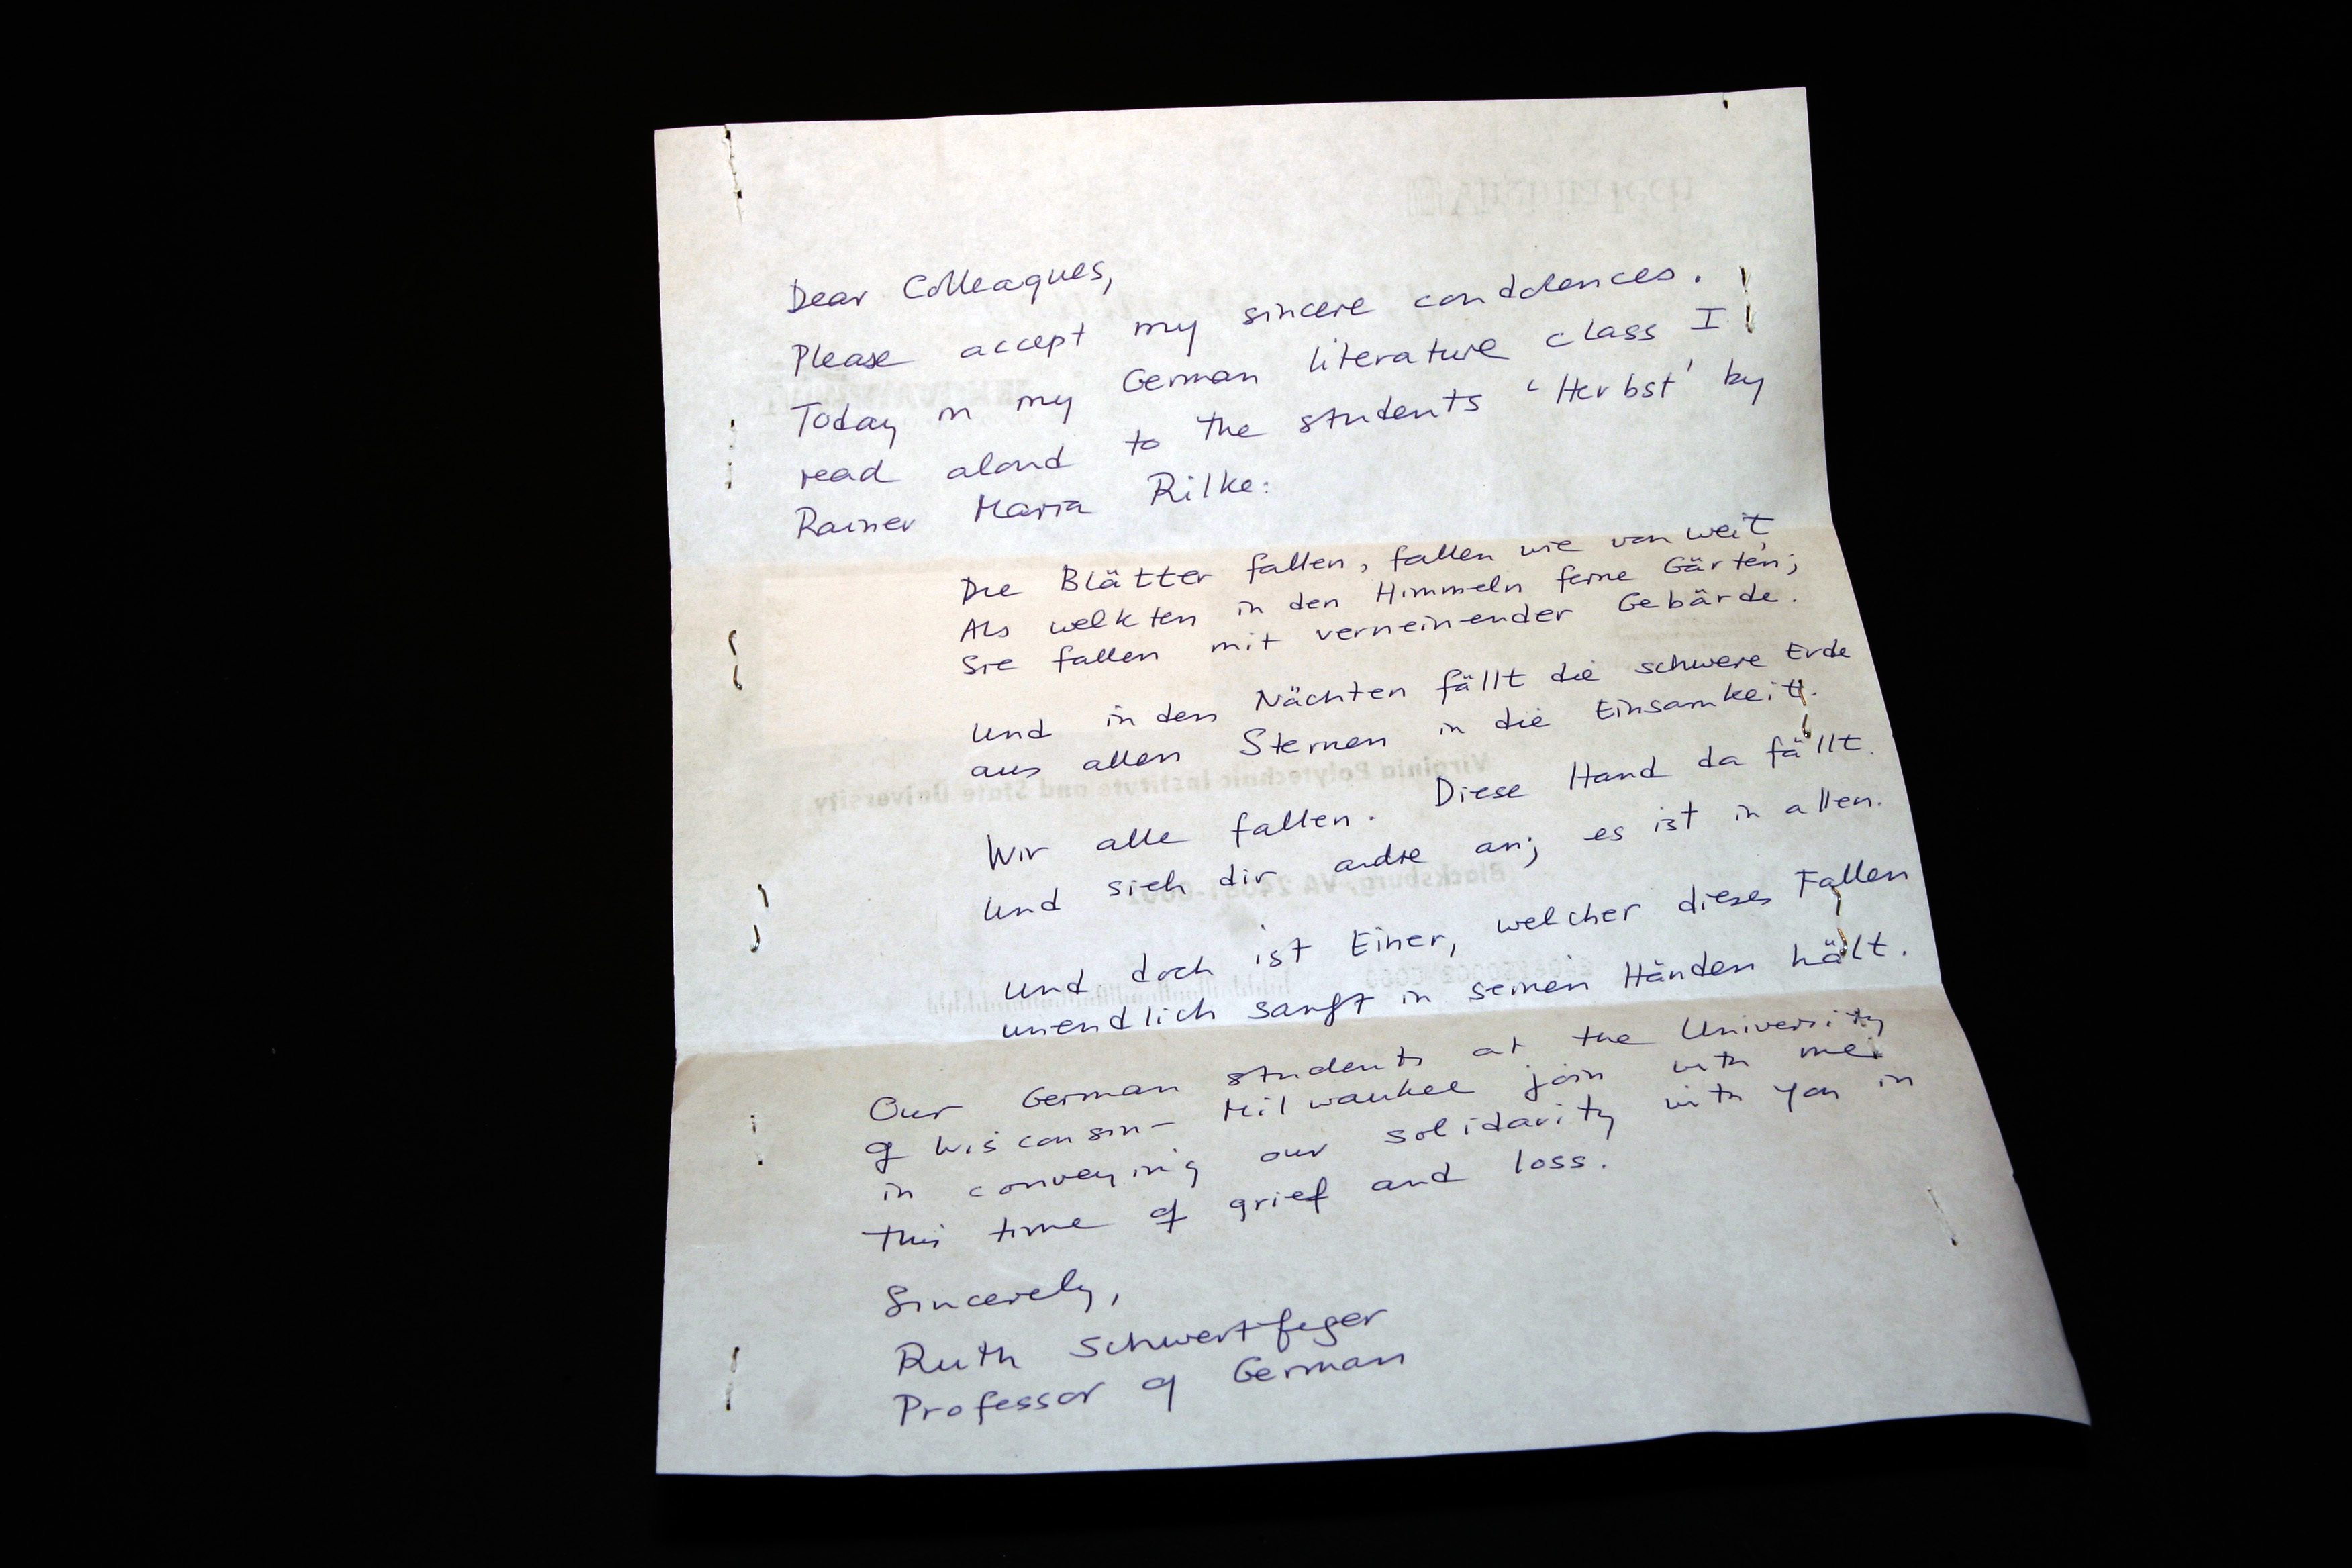 Dear Colleagues,
Please accept my sincere condolences.
Today in my German literature class I
read aloud to the students 'Herbst' by
Rainer Maria Rilke:
Die Blätter fallen, fallen wie von weit,
Als welkten in den Himmeln ferne Gärten;
Sie fallen mit verneinender Gebärde.
Und in den Nächten fällt die schwere Erde
aus allen Sternen in die Einsamkeit.
Wir alle fallen. Diese Hand da fällt.
Und sieh dir andre an; es ist in allen.
Und doch ist Einer, welcher dieses Fallen
unendlich sanft in seinen Händen hält.
Our German students at the University
of Wisconsin - Milwaukee join with me
in conveying our solidarity with you in
this time of grief and loss.
Sincerely,
Ruth Schwertfeger
Professor of German
Virginia Tech
Virginia Polytechnic Institute and State University
Blacksburg, VA